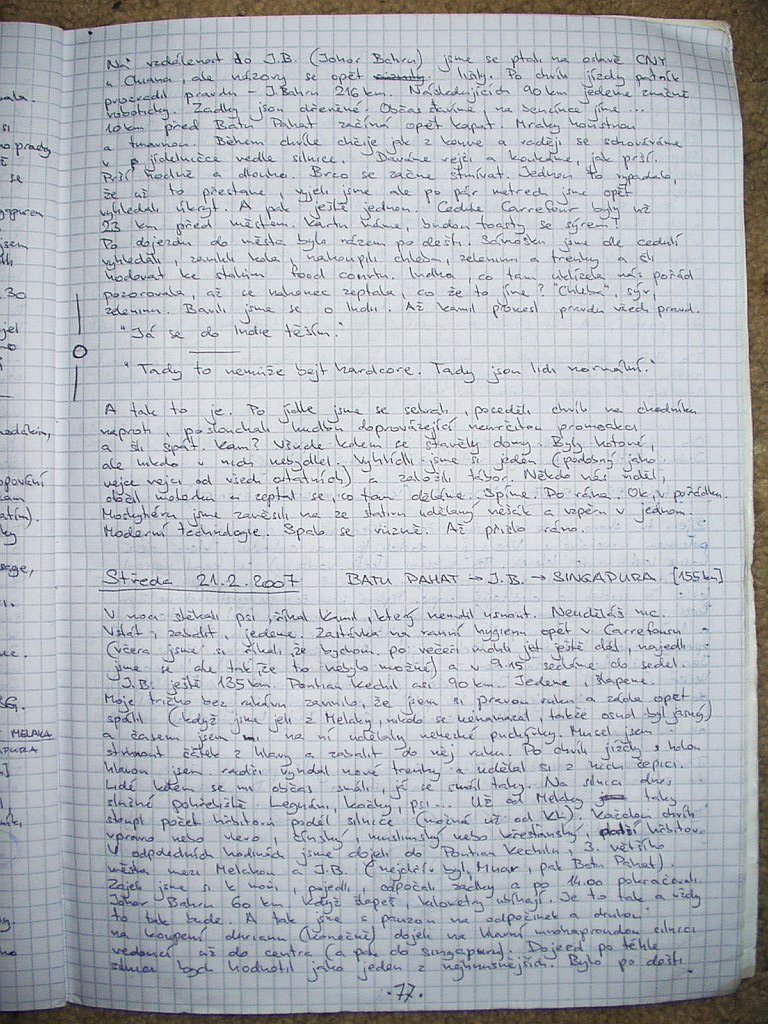 Na vzdálenost do J.B. (Johor Bahru) jsme se ptali na oslavě CNY
u Chuana, ale názory se opět lišily. Po chvíli jízdy patník
prozradil pravdu – J.Bahru 216 km. Následujících 90 km jedeme značně
roboticky. Zadky jsou dřevěné. Občas stavíme na benzínce jíme...
10 km před Batu Pahat začíná opět kapat. Mraky houstnou
a tmavnou. Během chvíle chčije jak z konve a raději se schováváme
v jídelničce vedle silnice. Dáváme rejži a koukáme, jak prší.
Prší hodně a dlouho. Brzo se začne stmívat. Jednou to vypadalo,
že už to přestane, vyjeli jsme ale po pár metrech jsme opět
vyhledali úkryt. A pak ještě jednou. Cedule Carrefour byly už
23 km před městem. Kartu máme, budou toasty se sýrem!
Po dojezdu do města bylo rázem po dešti. Sámošku jsme dle cedulí
vyhledali, zamkli kola, nakoupili chleba, zeleninu a trenky a šli
hodovat ke stolům food courtu. Indka, co tam uklízela nás pořád
pozorovala, až se nakonec zeptala, co že to jíme? "Chleba", sýr,
zeleninu. Bavili jsme se o Indii. Až Kamil pronesl pravdu všech pravd.
"Já se do Indie těším."
"Tady to nemůže bejt hardcore. Tady jsou lidi normální."
A tak to je. Po jídle jsme se sebrali, poseděli chvíli na chodníku
naproti, poslouchali hudbu doprovázející neurčitou promoakci
a šli spát. Kam? Všude kolem se stavěly domy. Byly hotové,
ale nikdo v nich nebydlel. Vyhlídli jsme si jeden (podobný jako
vejce vejci od všech ostatních) a založili tábor. Někdo nás viděl,
otočil motorku a zeptal se, co tam děláme. Spíme. Do rána. Ok, v pořádku.
Moskytiéru jsme zavěsili na ze stativu udělaný věšák a vzpěru v jednom.
Moderní technologie. Spalo se různě. Až přišlo ráno.
Středa 21.2.2007 BATU PAHAT → J.B. → SINGAPURA [155 km]
V noci štěkali psi, říkal Kamil, který nemohl usnout. Neuděláš nic.
Vstát, zabalit, jedeme. Zastávka na ranní hygienu opět v Carrefouru
(včera jsme si říkali, že bychom po večeři mohli jet ještě dál, najedli
jsme se ale tak, že to nebylo možné) a v 9.15 sedáme do sedel.
J.B. ještě 135 km. Pontian Kechil asi 90 km. Jedeme, šlapeme.
Moje tričko bez rukávu zavinilo, že jsem si pravou ruku a záda opět
spálil (když jsme jeli z Melaky, nikdo se nenamazal, takže osud byl jasný)
a časem jsem na ní udělaly nehezké puchýřky. Musel jsem
strhnout šátek z hlavy a zabalit do něj ruku. Po chvíli jízdy s holou
hlavou jsem radši vyndal nové trenky a udělal si z nich čepici.
Lidé kolem se mi občas smáli, já se smál taky. Na silnici dnes
slušné pohřebiště. Legváni, kočky, psi... Už od Melaky taky
stoupl počet hřbitovů podél silnice (možná už od KL). Každou chvíli
vpravo nebo vlevo, čínský, muslimský nebo křesťanský, hřbitov.
V odpoledních hodinách jsme dojeli do Pontian Kechilu, 3. většího
města mezi Melakou a J.B. (nejdřív byl Muar, pak Batu Pahat).
Zajeli jsme si k moři, pojedli, odpočali zadky a po 14.00 pokračovali.
Johor Bahru 60 km. Když šlapeš, kilometry ubíhají. Je to tak a vždy
to tak bude. A tak jsme s pauzou na odpočinek a druhou
na koupení durianu (konečně) dojeli na hlavní mnohaproudou silnici
vedoucí už do centra (a pak do Singapuru). Dojezd po téhle
silnici bych hodnotil jako jeden z nejhnusnějších. Bylo po dešti
.77.